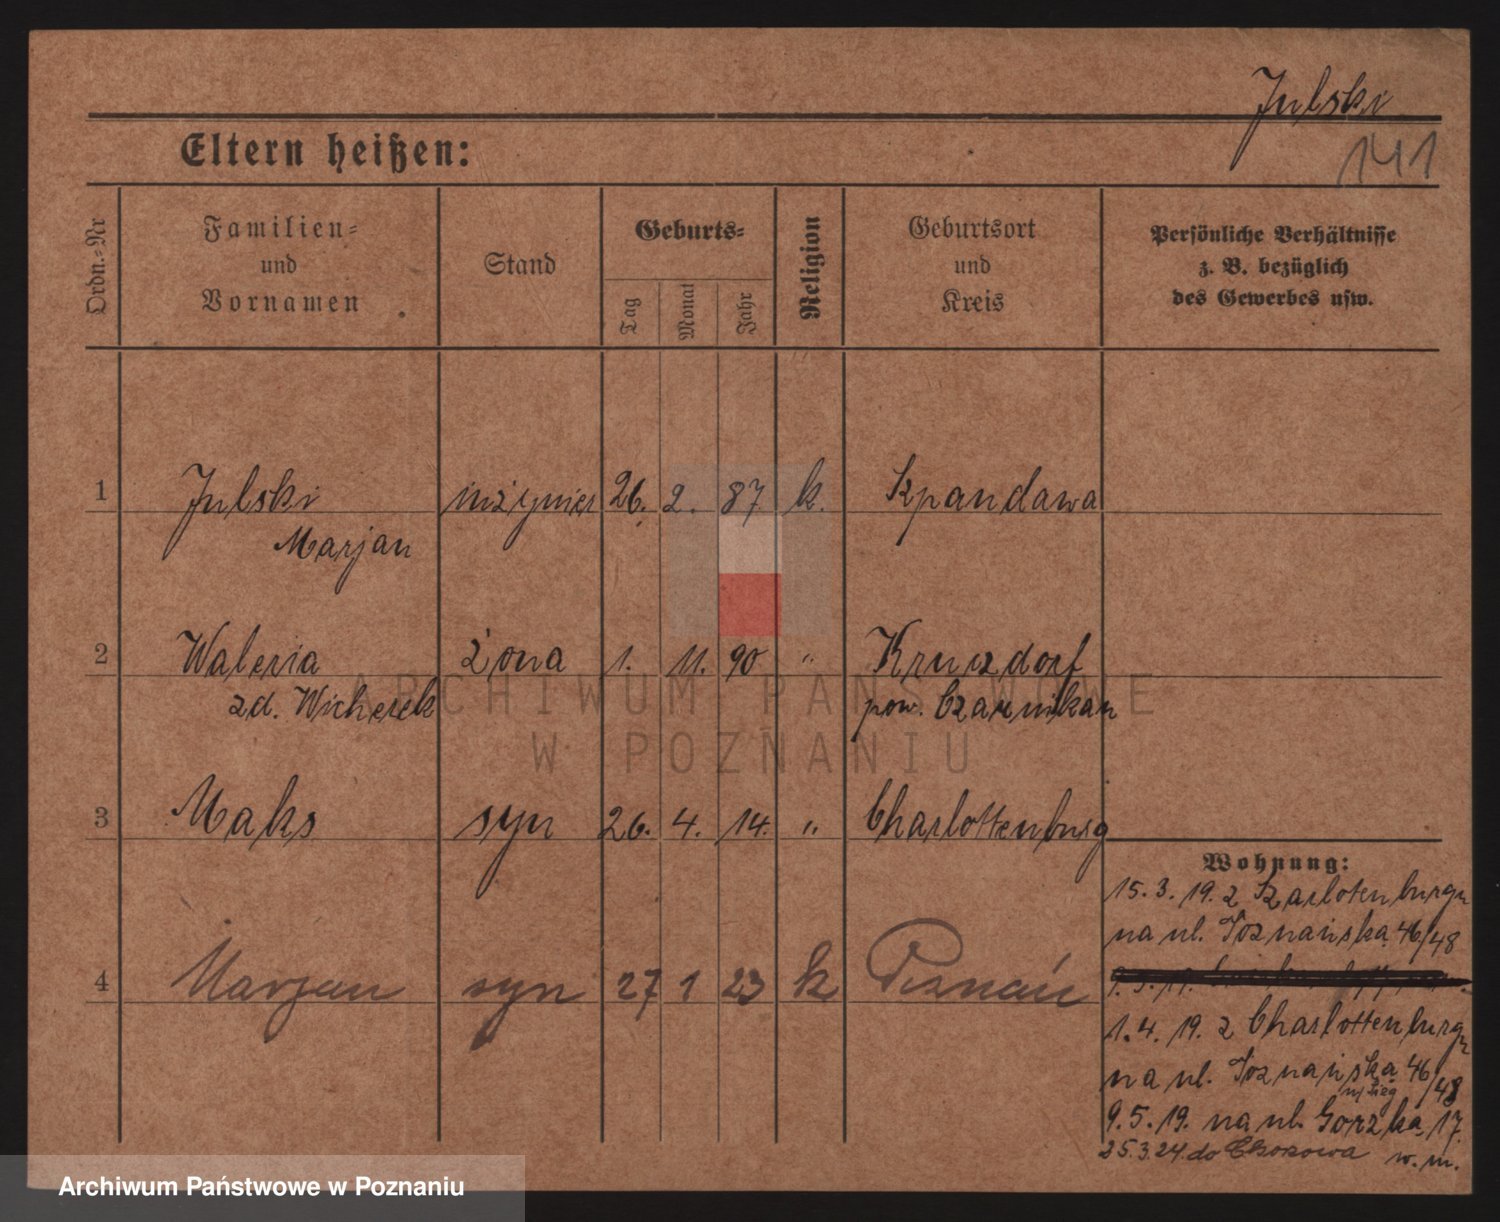 Julski
141
Eltern heißen:
Ordn.-Nr
Familien-
und
Vornamen
Stand
Geburts-
Tag
Monat
Jahr
Religion
Geburtsort
und
Kreis
Persönliche Verhältnisse
z. B. bezüglich
des Gewerbes usw.
1 Julski inżynier 26. 2. 87 k. Szpandawa
Marjan
2 Waleria żona 1. 11. 90 " Kruszdorf
zd. Wicherek pow. Czarnikau
3 Maks syn 26. 4. 14. " Charlottenburg
4 Marjan syn 27 1 23 k Poznań
Wohnung:
15.3.19. z Szarlotenburgu
na ul. Poznańską 46/48
1.4.19. z Charlottenburgu
na ul. Poznańską 46/48
9.5.19. na ul. Gorzka 17.
25.3.24. do w. m.
ARCHIWUM PAŃSTWOWE
W POZNANIU
Archiwum Państwowe w Poznaniu